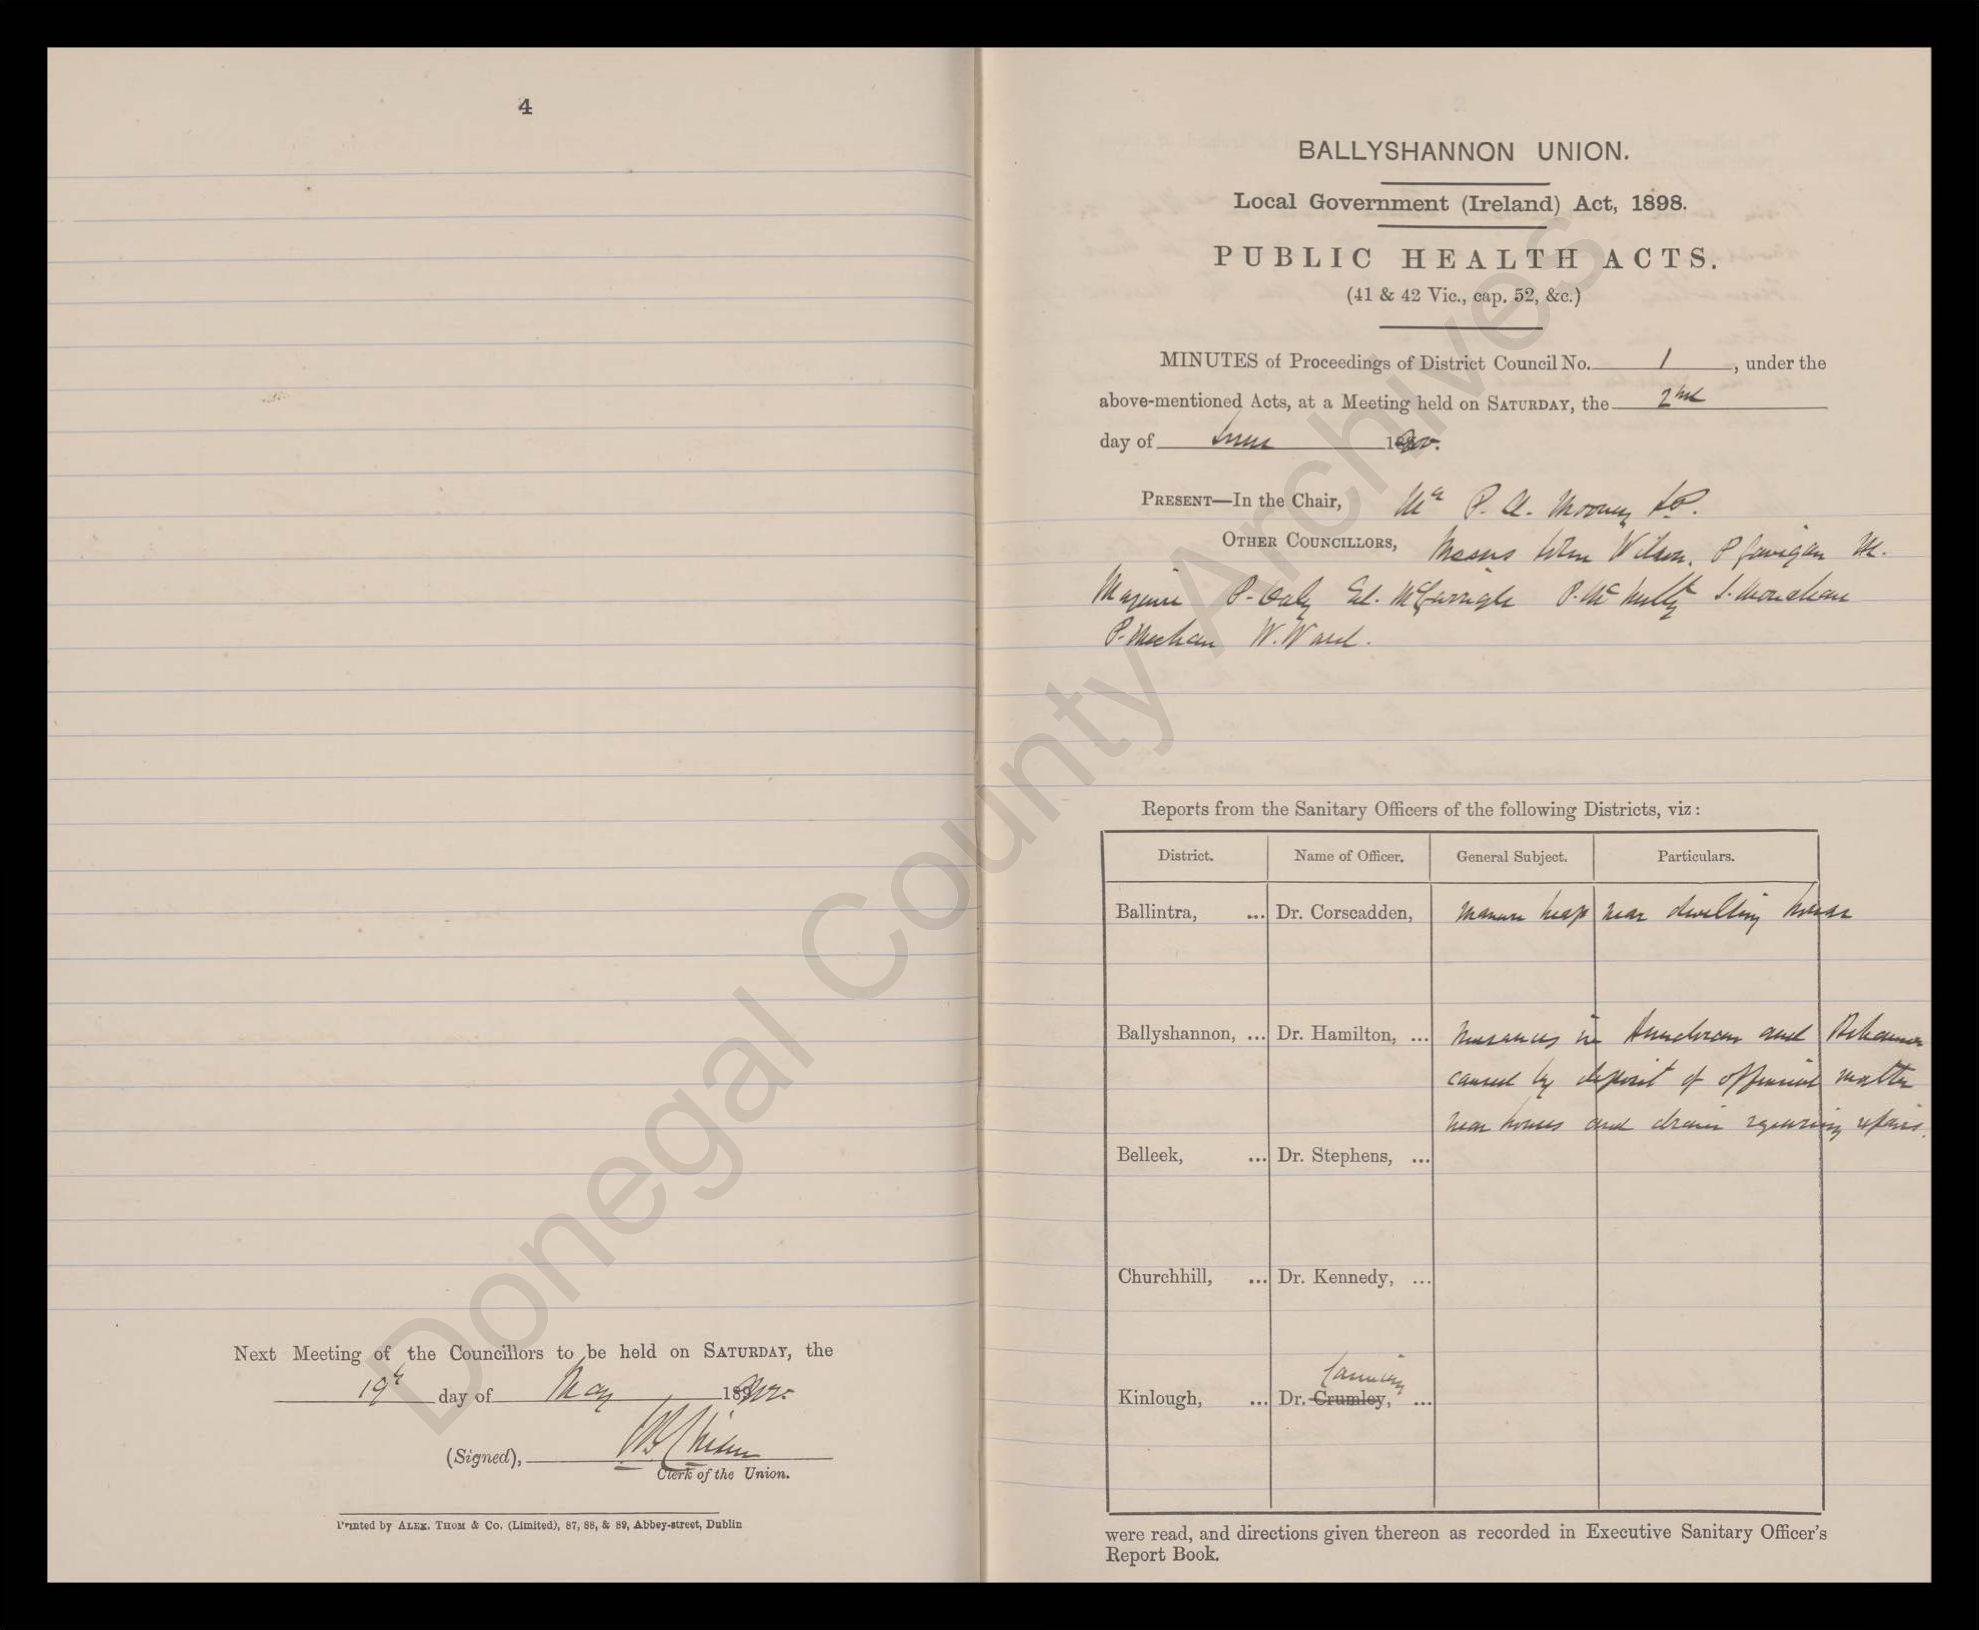 4
Next Meeting of the Councillors to be held on SATURDAY, the
19th day of May 18
(Signed),
Clerk of the Union.
Printed by ALEX. THOM & Co. (Limited), 87, 88, & 89, Abbey-street, Dublin
BALLYSHANNON UNION.
Local Government (Ireland) Act, 1898.
PUBLIC HEALTH ACTS.
(41 & 42 Vic., cap. 52, &c.)
MINUTES of Proceedings of District Council No. 1, under the
above-mentioned Acts, at a Meeting held on SATURDAY, the 2nd
day of June
PRESENT—In the Chair, Mr P. A. Mooney
OTHER COUNCILLORS, Messrs John Wilson, P Gavigan M.
Maguire P. Daly Ed. McGarrigle P. McNulty J. Monahan
P. Meehan W. Ward.
Reports from the Sanitary Officers of the following Districts, viz:
District. Name of Officer. General Subject. Particulars.
Ballintra, ... Dr. Corscadden, manure heap near dwelling house
Ballyshannon, ... Dr. Hamilton, ... Nuisances in Bundoran and
caused by deposit of offensive matter
near houses and drain requiring repairs.
Belleek, ... Dr. Stephens, ...
Churchhill, ... Dr. Kennedy, ...
Kinlough, ... Dr. Crumley, ...
were read, and directions given thereon as recorded in Executive Sanitary Officer's
Report Book.
Donegal County Archives